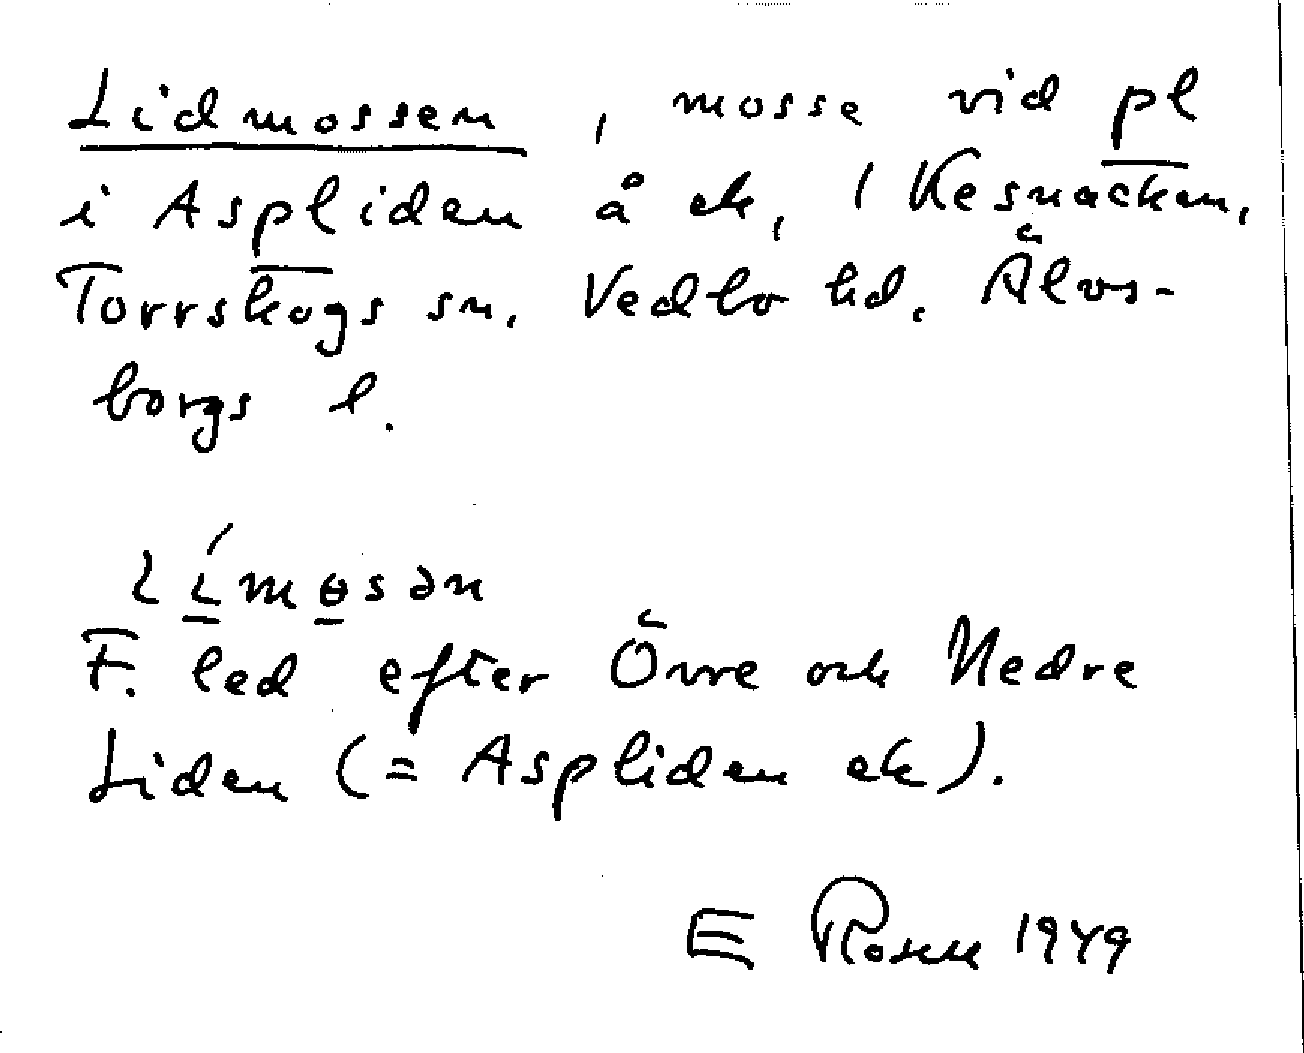 Lidmossen, mosse vid pl
i Aspliden å ek, 1 Kesnacken,
Torrskogs sn. Vedbo hd. Älvs-
borgs l.
límɵsən
F. led efter Övre och Nedre
Liden (= Aspliden ek).
E 1949